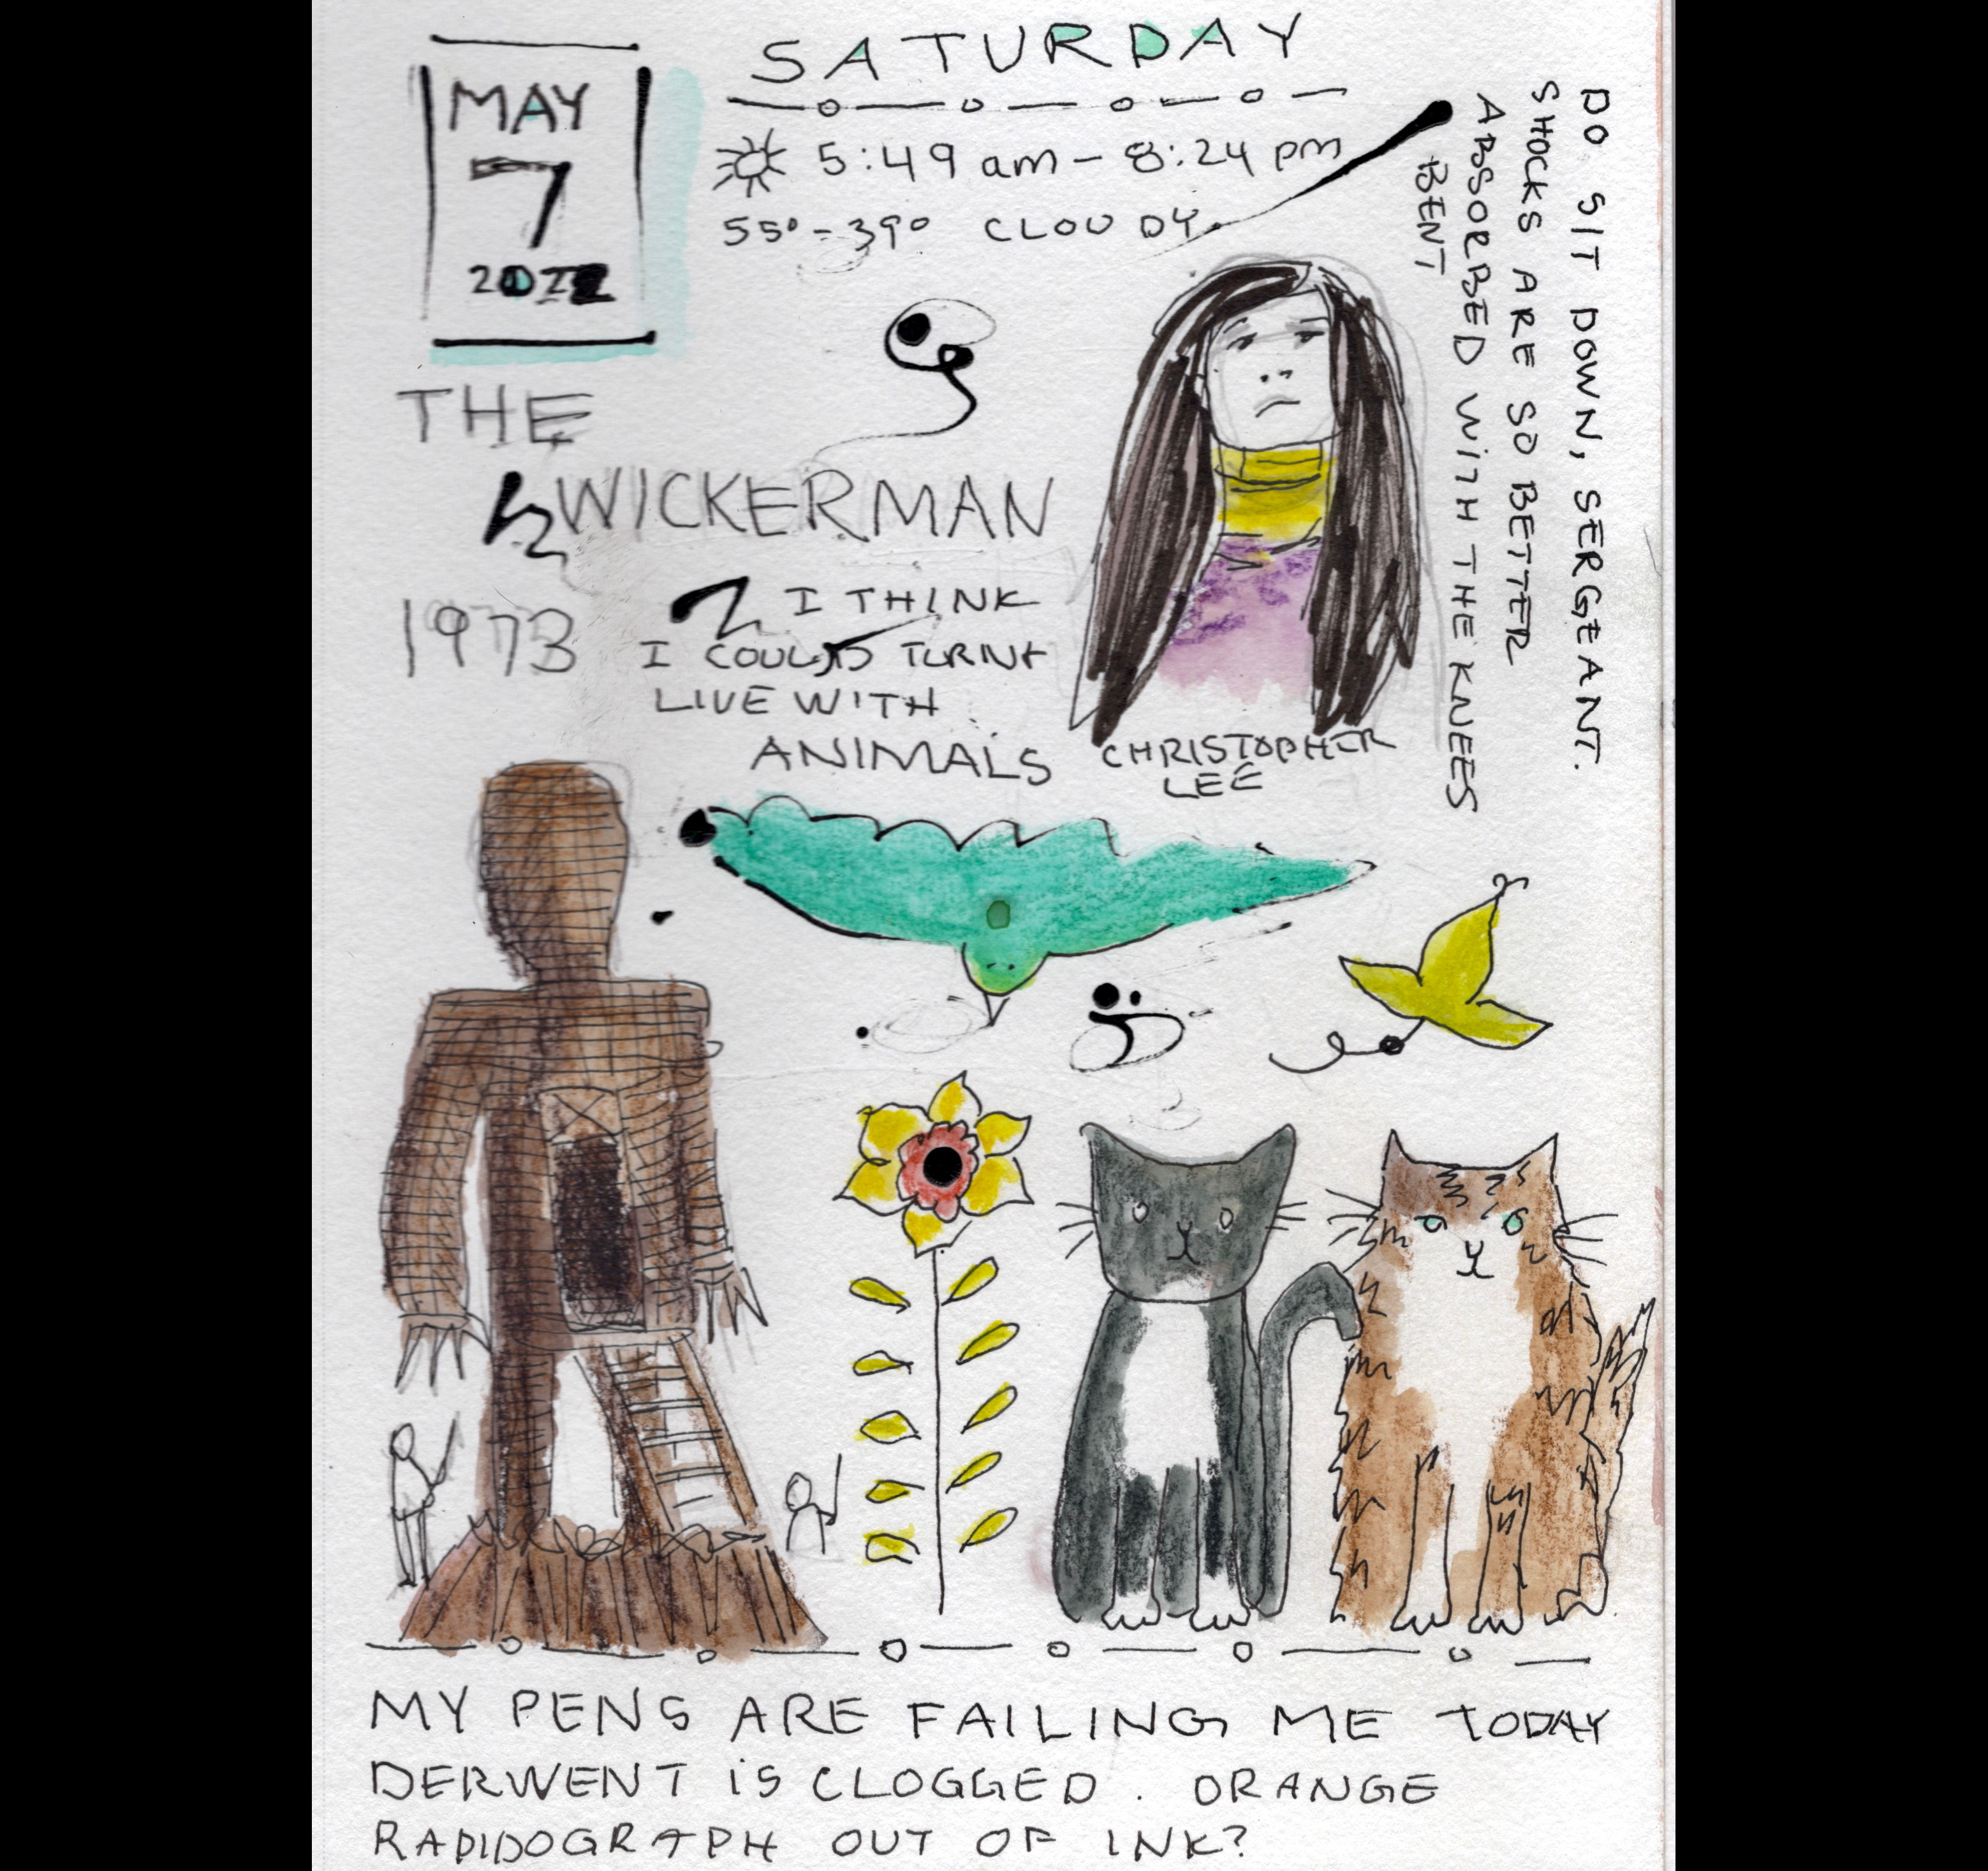 MAY
7
2022
SATURDAY
5:49 am - 8:24 pm
55° - 39° CLOUDY
DO SIT DOWN, SERGEANT.
SHOCKS ARE SO BETTER
ABSORBED WITH THE KNEES
BENT
THE
WICKERMAN
1973
I THINK
I COULD TURN +
LIVE WITH
ANIMALS
CHRISTOPHER
LEE
MY PENS ARE FAILING ME TODAY
DERWENT IS CLOGGED. ORANGE
RADIDOGRAPH OUT OF INK?